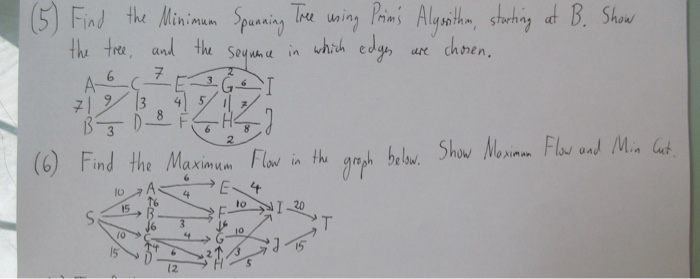 (5) Find the Minimum Spanning Tree using Prim's Algorithm, starting at B. Show
the tree, and the sequence in which edges are chosen.
2
A 6 C 7 E 3 G 6 I
7 9 3 4 5 1 7
B 3 D 8 F 6 H 8 J
2
(6) Find the Maximum Flow in the graph below. Show Maximum Flow and Min Cut.
10 A 6 4 E 4
S 15 6 B 10 I 20 T
10 6 C 3 4 6 G 10 J 15
15 4 D 6 2 H 3 5
12